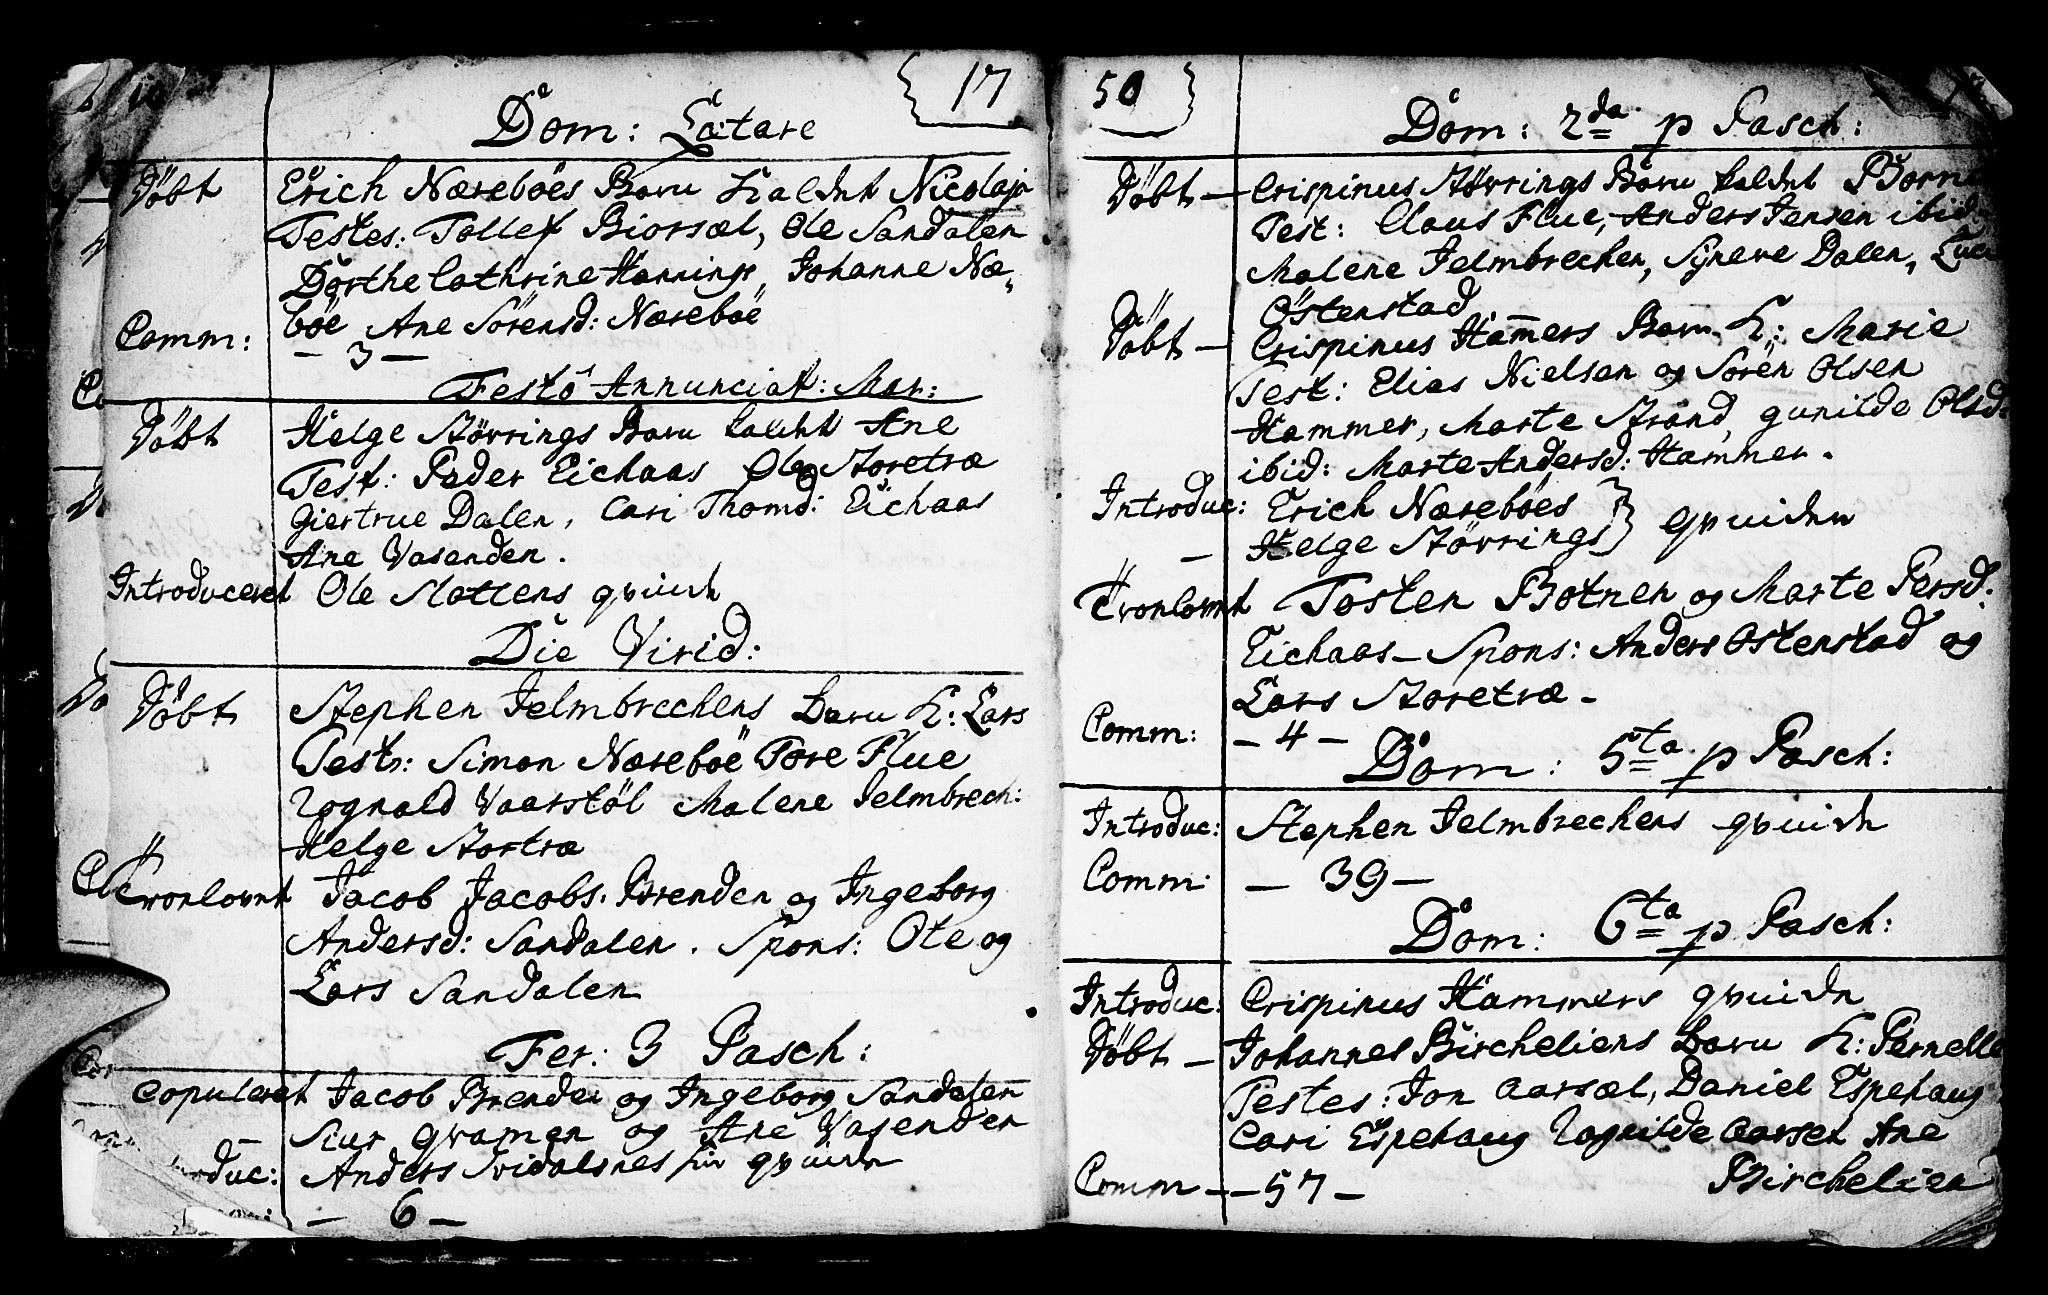 17
Dom: Lætare
Döbt Erich Næreböes Barn Kaldet Nicolaj
Testes: Tollef Biorsæl, Ole Sandalen
Dorthe Cathrine Hannings, Johanne Næ-
böe Ane Sörensd: Næreböe
Comm: - 3 -
Festo Annunciat: Mar:
Döbt Helge Störrings Barn kaldet Ane
Test: Peder Eichaas Ole Storetræ
Giertrue Dalen, Cari Thomd: Eichaas
Ane Vasenden.
Introduceret Ole Slottens qvinde
Die Virid:
Döbt Stephen Jelmbrechens Barn K: Lars
Test: Simon Næreböe Tore Flue
Rognald Vaarstöl Malene Jelmbrech:
Helge Stortræ
Trorlovet Jacob Jacobs. Brenden og Ingeborg
Andersd: Sandalen. Spons: Ole og
Lars Sandalen
Fer: 3 Pasch:
Copuleret Jacob Brenden og Ingeborg Sandalen
- Siur Qvamen og Ane Vasenden
Anders qvinde
- 6 -
50
Dom: 2da p Pasch:
Döbt - Crispinus Störrings Barn kaldet
Test: Claus Flue, Anders Jensen ibid:
Malene Jelmbrechen, Synere Dalen,
Östenstad
Döbt - Crispinus Hamers Barn K: Marie
Test: Elias Nielsen og Sören Olsen
Hammer, Marte Strand, gunilde Olsd:
ibid: Marte Andersd: Hammer.
Introduc: Erich Næreböes
- Helge Störrings } qvinder
Trorlovet Tosten Botnen og Marte Persd:
Eichaas - Spons: Anders Ostenstad og
Lars Storetræ -
Comm: - 4 -
Dom: 5ta p Pasch:
Introduc: Stephen Jelmbrechens qvinde
Comm: - 39 -
Dom: 6ta p Pasch:
Introduc: Crispinus Hammers qvinde
Döbt - Johannes Bircheliens Barn K: Pernelle
Testes: Jon Aarsæl, Daniel Espehaug
Cari Espehaug Rognilde Aarset Ane
Birchelien
Comm - - 57 -